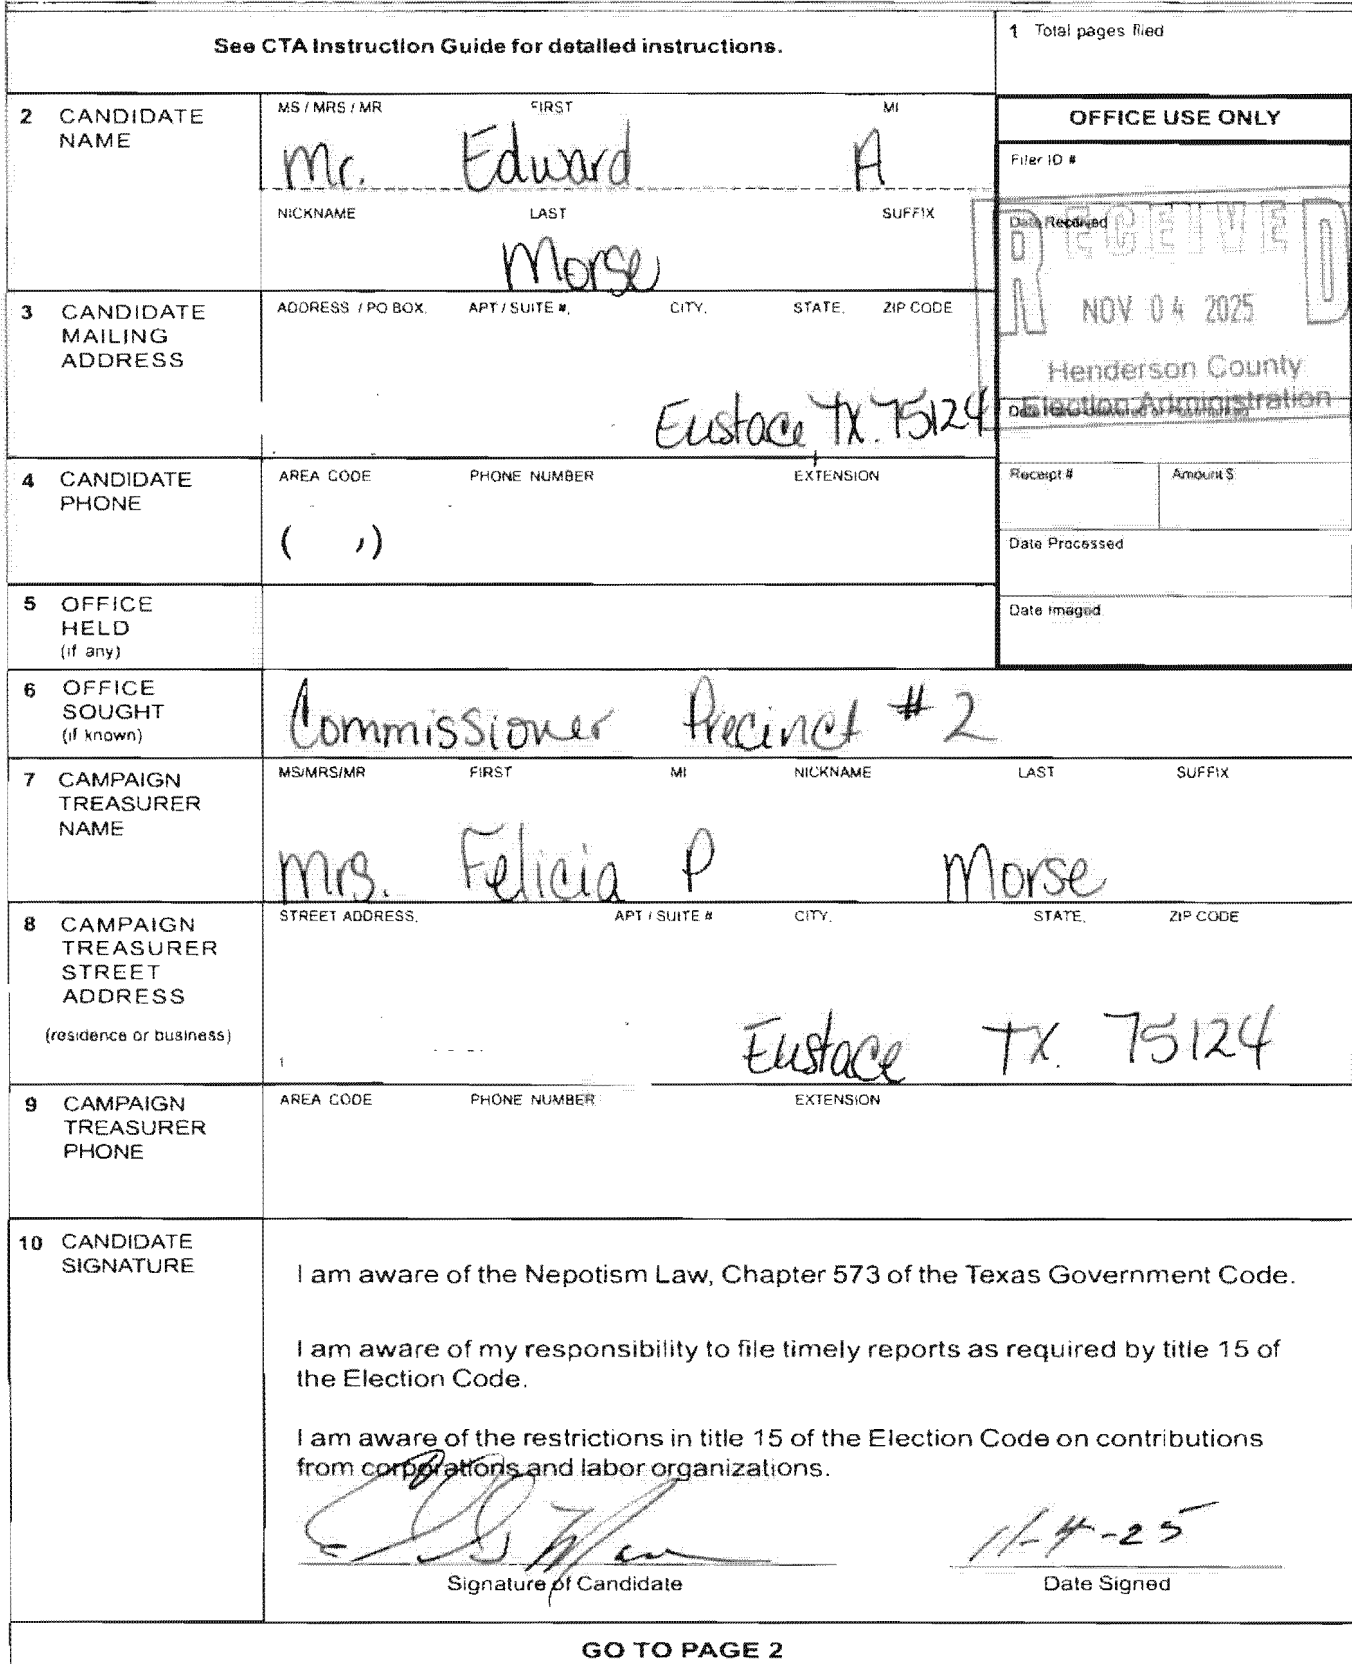 See CTA Instruction Guide for detailed instructions.
1 Total pages filed
2 CANDIDATE NAME
MS / MRS / MR FIRST MI
Mr. Edward A
NICKNAME LAST SUFFIX
Morse
OFFICE USE ONLY
Filer ID #
Date Received
RECEIVED
NOV 04 2025
Henderson County
Election Administration
3 CANDIDATE MAILING ADDRESS
ADDRESS / PO BOX, APT / SUITE #, CITY, STATE, ZIP CODE
Eustace TX. 75124
4 CANDIDATE PHONE
AREA CODE PHONE NUMBER EXTENSION
( )
Receipt # Amount $
Date Processed
Date Imaged
5 OFFICE HELD (if any)
6 OFFICE SOUGHT (if known)
Commissioner Precinct #2
7 CAMPAIGN TREASURER NAME
MS/MRS/MR FIRST MI NICKNAME LAST SUFFIX
Mrs. Felicia P Morse
8 CAMPAIGN TREASURER STREET ADDRESS
(residence or business)
STREET ADDRESS, APT / SUITE # CITY, STATE, ZIP CODE
Eustace TX. 75124
9 CAMPAIGN TREASURER PHONE
AREA CODE PHONE NUMBER EXTENSION
10 CANDIDATE SIGNATURE
I am aware of the Nepotism Law, Chapter 573 of the Texas Government Code.
I am aware of my responsibility to file timely reports as required by title 15 of
the Election Code.
I am aware of the restrictions in title 15 of the Election Code on contributions
from corporations and labor organizations.
11-4-25
Signature of Candidate Date Signed
GO TO PAGE 2